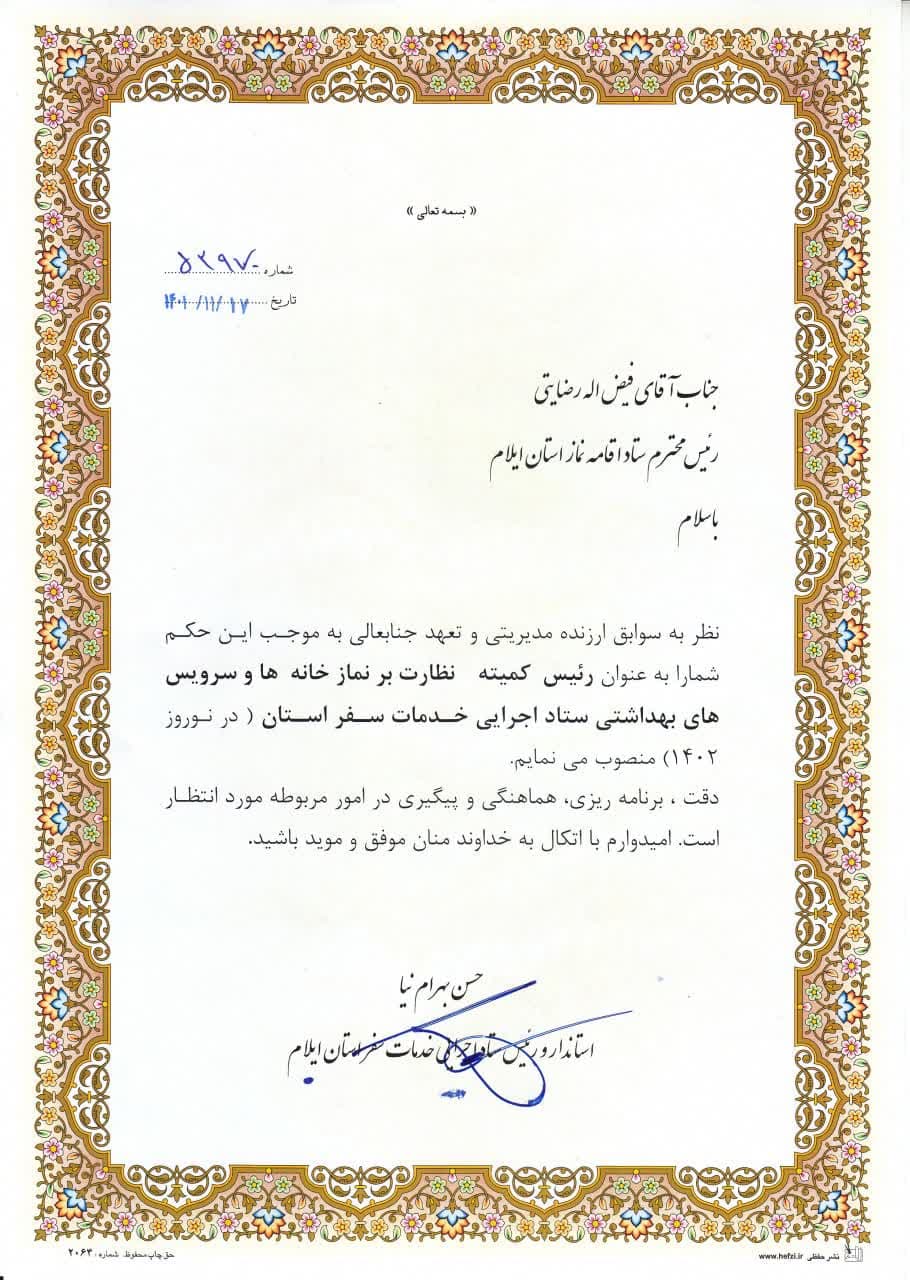 « بسمه تعالی »
شماره ۵۳۹۷۰
تاریخ ۱۴۰۱/۱۱/۱۷
جناب آقای فیض اله رضایتی
رئیس محترم ستاد اقامه نماز استان ایلام
باسلام
نظر به سوابق ارزنده مدیریتی و تعهد جنابعالی به موجب این حکم
شمارا به عنوان رئیس کمیته نظارت بر نماز خانه ها و سرویس
های بهداشتی ستاد اجرایی خدمات سفر استان ( در نوروز
۱۴۰۲) منصوب می نمایم.
دقت ، برنامه ریزی، هماهنگی و پیگیری در امور مربوطه مورد انتظار
است. امیدوارم با اتکال به خداوند منان موفق و موید باشید.
حسن بهرام نیا
استاندار و رئیس ستاد اجرایی خدمات سفر استان ایلام
نشر حفظی www.hefzi.ir
حق چاپ محفوظ. شماره : ۲۰۶۴